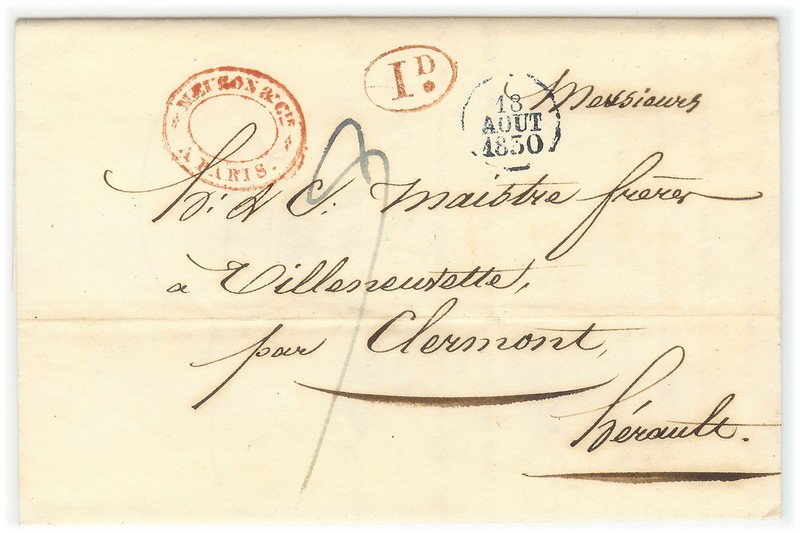 MEURON & CIE
A PARIS.
1D.
18
AOUT
1830
Messieurs
H: & C: Maistre frères
à Villeneuvette,
par Clermont,
Hérault.